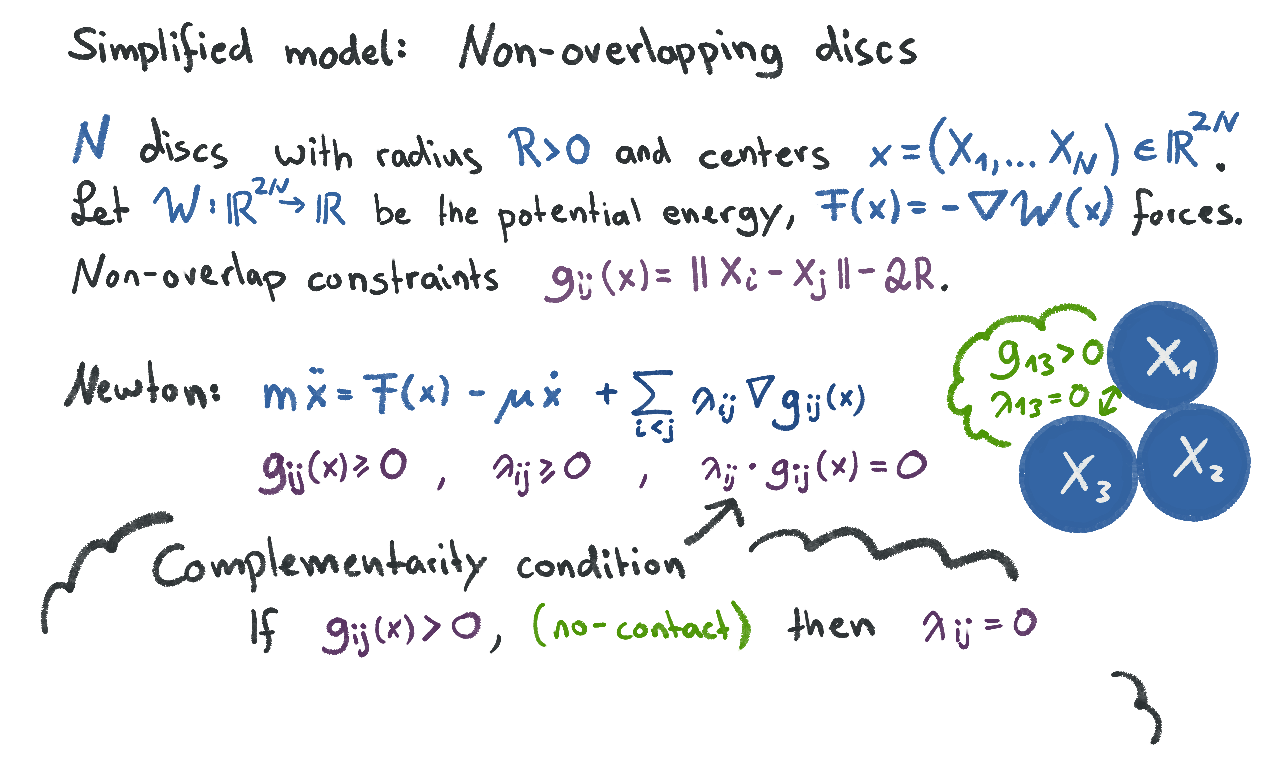 Simplified model: Non-overlapping discs
N discs with radius R>0 and centers x=(X₁,... X_N) ∈ ℝ²ᴺ.
Let W: ℝ²ᴺ→ ℝ be the potential energy, F(x) = -∇W(x) forces.
Non-overlap constraints g_ij(x) = ||X_i - X_j|| - 2R.
Newton: mẍ = F(x) - μẋ + Σ_{i<j} λ_ij ∇g_ij(x)
g_ij(x) ≥ 0 , λ_ij ≥ 0 , λ_ij · g_ij(x) = 0
g₁₃>0
λ₁₃=0
X₁
X₂
X₃
Complementarity condition
If g_ij(x) > 0, (no-contact) then λ_ij = 0